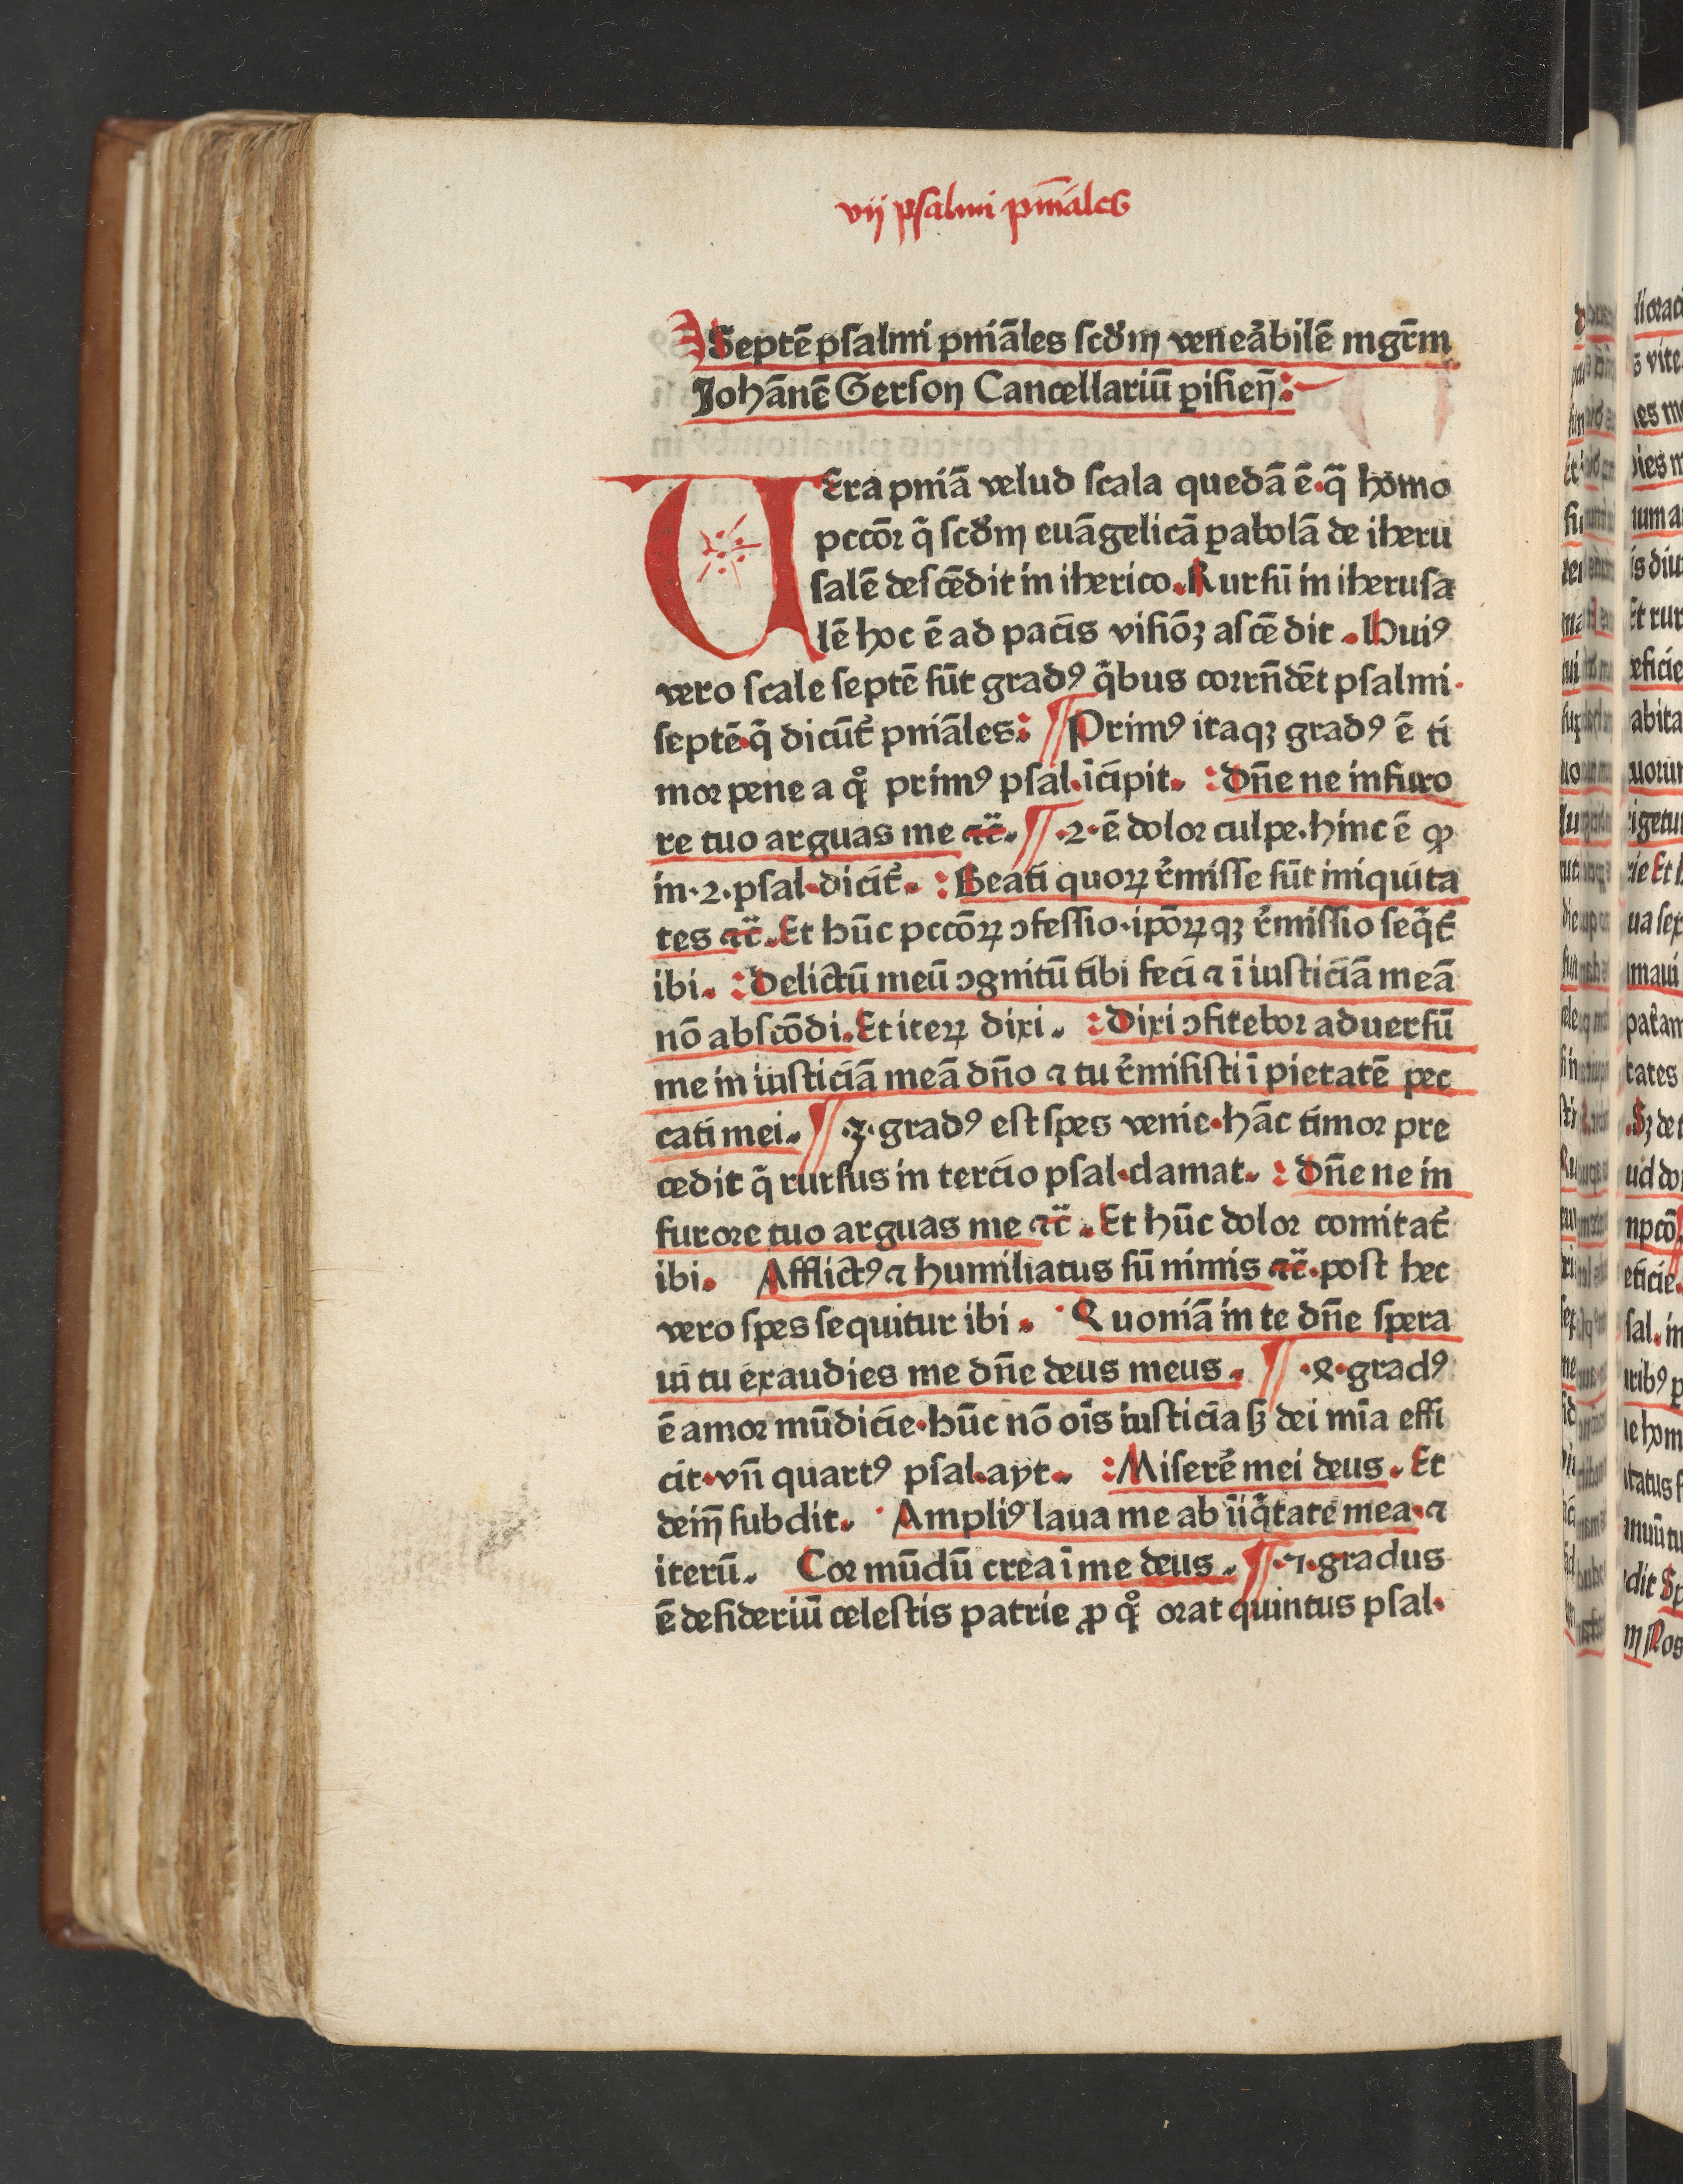 vij psalmi pniāles
Septē psalmi pniāles scd̓m veneābilē mgr̄m
Johānē Gerson Cancellariū ꝑisieñ:
UEra pniā velud scala quedā ē·q̄ homo
pccōꝛ q̄ scd̓m euāgelicā ꝑabolā de iheru
salē descēdit in iherico. Rursū in iherusa
lē hoc ē ad pacis visiōꝫ ascēdit. Huiꝰ
vero scale septē sūt gradꝰ q̄bus corrn̄dēt psalmi·
septē·q̄ dicūt᷑ pniāles: Primꝰ itaqꝫ gradꝰ ē ti
moꝛ pene a qͦ primꝰ psal·īcipit. :dn̄e ne in furo
re tuo arguas me ⁊c̄. ·2·ē doloꝛ culpe·hinc ē ꝙ
in·2·psal·dicit᷑. :Beati quoꝝ r̓misse sūt iniquita
tes ⁊c̄. Et hūc pccōꝝ ↄfessio·ipōꝝqꝫ r̓missio seq̄t᷑
ibi. :Delictū meū ↄgnitū tibi feci ⁊ ī iusticiā meā
nō abscōdi. Et iteꝝ dixi. :Dixi ↄfiteboꝛ aduersū
me in iusticiā meā dn̄o ⁊ tu r̓misisti ī pietatē pec
cati mei. ·3·gradꝰ est spes venie·hāc timoꝛ pre
cedit q̄ rursus in tercio psal·clamat. :dn̄e ne in
furoꝛe tuo arguas me ⁊c̄. Et hūc doloꝛ comitat᷑
ibi. Afflictꝰ ⁊ humiliatus sū nimis ⁊c̄·post hec
vero spes sequitur ibi. Quoniā in te dn̄e spera
ui tu exaudies me dn̄e deus meus. ·4·gradꝰ
ē amoꝛ mūdicie·hūc nō oīs iusticia sꝫ dei mīa effi
cit·vn̄ quartꝰ psal·ayt. :Miserē mei deus. Et
dein̄ subdit. Ampliꝰ laua me ab īiq̄tate mea·⁊
iterū. Coꝛ mūdū crea ī me deus. ·5·gradus
ē desideriū celestis patrie ꝓ qͦ oꝛat quintus psal·